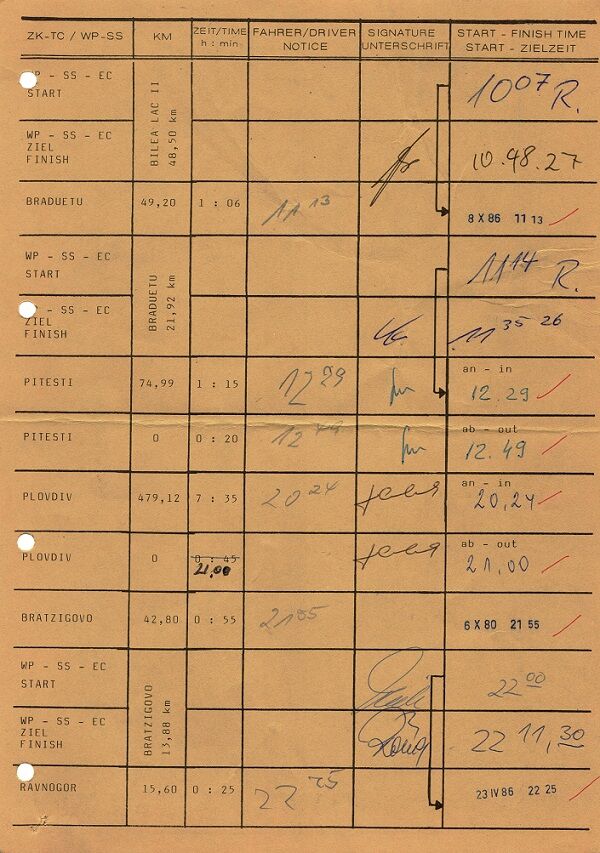 ZK-TC / WP-SS KM ZEIT/TIME FAHRER/DRIVER SIGNATURE START - FINISH TIME
h : min NOTICE UNTERSCHRIFT START - ZIELZEIT
WP - SS - EC
START
BILEA LAC II
48,50 km
10 07 R.
WP - SS - EC
ZIEL
FINISH
10.48.27
BRADUETU 49,20 1 : 06 11 13 8 X 86 11 13
WP - SS - EC
START
BRADUETU
21,92 km
11 14 R.
WP - SS - EC
ZIEL
FINISH
11 35 26
an - in
PITESTI 74,99 1 : 15 12 29 12.29
ab - out
PITESTI 0 0 : 20 12 49 12.49
an - in
PLOVDIV 479,12 7 : 35 20 24 20,24
ab - out
PLOVDIV 0 0 : 45 21,00
21,00
BRATZIGOVO 42,80 0 : 55 21 55 6 X 80 21 55
WP - SS - EC
START
BRATZIGOVO
13,88 km
22 00
WP - SS - EC
ZIEL
FINISH
22 11,30
RAVNOGOR 15,60 0 : 25 22 25 23 IV 86 22 25